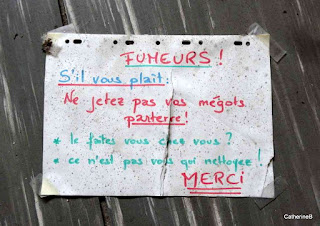 FUMEURS !
S'il vous plaît :
Ne jetez pas vos mégots
parterre !
* le faites vous chez vous ?
* ce n'est pas vous qui nettoyez !
MERCI
CatherineB